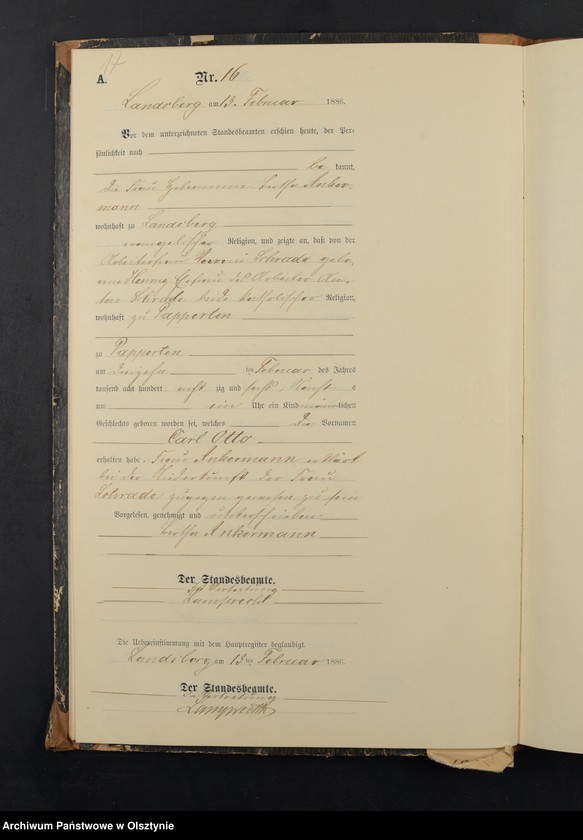 17
A.
Nr. 16
Landsberg am 13. Februar 1886.
Vor dem unterzeichneten Standesbeamten erschien heute, der Per-
sönlichkeit nach
be kannt,
die Frau Hebamme Bertha Anker-
mann
wohnhaft zu Landsberg
evangelischer Religion, und zeigte an, daß von der
Schrade gebo-
rene Hennig Ehefrau des Arbeiter An-
ton Schrade beide katholischer Religion,
wohnhaft zu Papperten
zu Papperten
am ten Februar des Jahres
tausend acht hundert acht zig und sechs
um ein Uhr ein Kind männlichen
Geschlechts geboren worden sei, welches die Vornamen
Carl Otto
erhalten habe. Frau Ankermann erklärt
bei der Niederkunft der Frau
Schrade zugegen gewesen zu sein
Vorgelesen, genehmigt und unterschrieben
Bertha Ankermann
Der Standesbeamte.
In Vertretung
Lamprecht
Die Uebereinstimmung mit dem Hauptregister beglaubigt.
Landsberg am 13 ten Februar 1886.
Der Standesbeamte.
In Vertretung
Lamprecht
Archiwum Państwowe w Olsztynie